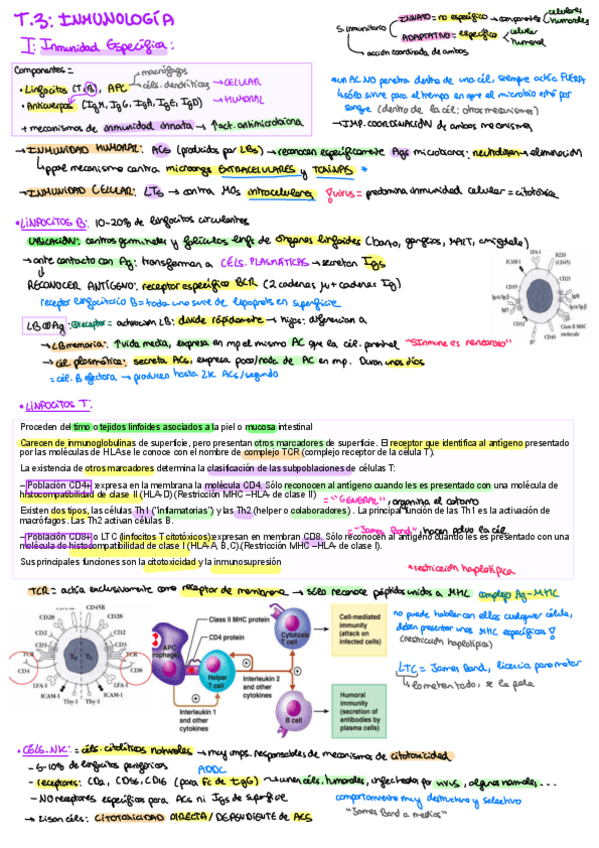 T.3: INMUNOLOGÍA
I: Inmunidad Específica:
S. inmunitario
INNATO = no específico → componentes
celulares
humorales
ADAPTATIVO = específico
celular
humoral
acción coordinada de ambos
Componentes =
• Linfocitos (T, B), APC
macrófagos
céls. dendríticas
→ CELULAR
• Anticuerpos (IgM, IgG, IgA, IgE, IgD) → HUMORAL
+ mecanismos de inmunidad innata → ↑act. antimicrobiana
*un AC NO penetra dentro de una cél, siempre actúa FUERA
↳ sólo sirve para el tiempo en que el microbio está por
sangre (dentro de la cél: otros mecanismos)
→ IMP. COORDINACIÓN de ambos mecanismos
→ INMUNIDAD HUMORAL: ACs (producidos por LBs) → reconocen específicamente Ags microbianos: neutralizan → eliminación
↳ ppal mecanismo contra microorgs EXTRACELULARES y TOXINAS *
→ INMUNIDAD CELULAR: LTs → contra MOs intracelulares
virus = predomina inmunidad celular = citotóxica
• LINFOCITOS B: 10-20% de linfocitos circulantes
UBICACIÓN: centros germinales y folículos linf. de órganos linfoides (bazo, ganglios, MALT, amígdala)
→ ante contacto con Ag: transforman a CÉLS. PLASMÁTICAS → secretan Igs
RECONOCER ANTÍGENO: receptor específico BCR (2 cadenas μ + cadenas Ig)
receptor linfocitario B = toda una serie de en superficie
LB Ag: receptor = activación LB: divide rápidamente → hijos: diferencian a
→ LB memoria: ↑vida media, expresa en mp el mismo AC que la cél. parental "Sinmune es rencoroso"
→ cél. plasmática: secreta ACs, expresa poco/nada de AC en mp. Duran unos días
= cél. B efectora → producen hasta 2K ACs/segundo
LFA-1
ICAM-1
B220
(CD45)
CD21
CD35
IgM
CD32
CD40
Class II MHC
molecule
• LINFOCITOS T:
Proceden del timo o tejidos linfoides asociados a la piel o mucosa intestinal
Carecen de inmunoglobulinas de superficie, pero presentan otros marcadores de superficie. El receptor que identifica al antígeno presentado
por las moléculas de HLA se le conoce con el nombre de complejo TCR (complejo receptor de la célula T).
La existencia de otros marcadores determina la clasificación de las subpoblaciones de células T:
–Población CD4+: expresa en la membrana la molécula CD4. Sólo reconocen al antígeno cuando les es presentado con una molécula de
histocompatibilidad de clase II (HLA-D).(Restricción MHC –HLA- de clase II)
= "GENERAL", organiza el cotarro
Existen dos tipos, las células Th1 ("inflamatorias") y las Th2 (helper o colaboradores) . La principal función de las Th1 es la activación de
macrófagos. Las Th2 activan células B.
= "James Bond", hacen polvo la cél
–Población CD8+ o LTC (linfocitos T citotóxicos):expresan en membran CD8. Sólo reconocen al antígeno cuando les es presentado con una
molécula de histocompatibilidad de clase I (HLA-A, B, C).(Restricción MHC –HLA- de clase I).
Sus principales funciones son la citotoxicidad y la inmunosupresión
*restricción haplotípica
TCR = actúa exclusivamente como receptor de membrana → sólo reconoce péptidos unidos a MHC complejo Ag-MHC
CD45R
CD28
CD28
CD2
CD2
CD3
CD3
CD4
CD8
LFA-1
LFA-1
ICAM-1
ICAM-1
Thy-1
Thy-1
Class II MHC protein
CD4 protein
Helper
T cell
Cytotoxic
T cell
B cell
Interleukin 1
and other
cytokines
Interleukin 2
and other
cytokines
Cell-mediated
immunity
(attack on
infected cells)
Humoral
immunity
(secretion of
antibodies by
plasma cells)
no puede hablar con ellos cualquier célula,
deben presentar unos MHC específicos
(restricción haplotípica)
LTC = James Bond, licencia para matar
• CÉLS. NK: = céls. citolíticas naturales → muy imps. responsables de mecanismos de citotoxicidad
- 5-10% de linfocitos periféricos
ADDC
- receptores: CD2, CD56, CD16 (para Fc de IgG) → unen céls. tumorales, infectadas por virus, algunas normales...
- NO receptores específicos para ACs ni Igs de superficie
comportamiento muy destructivo y selectivo
→ Lisan céls: CITOTOXICIDAD DIRECTA / DEPENDIENTE de ACs
"James Bond a medias"